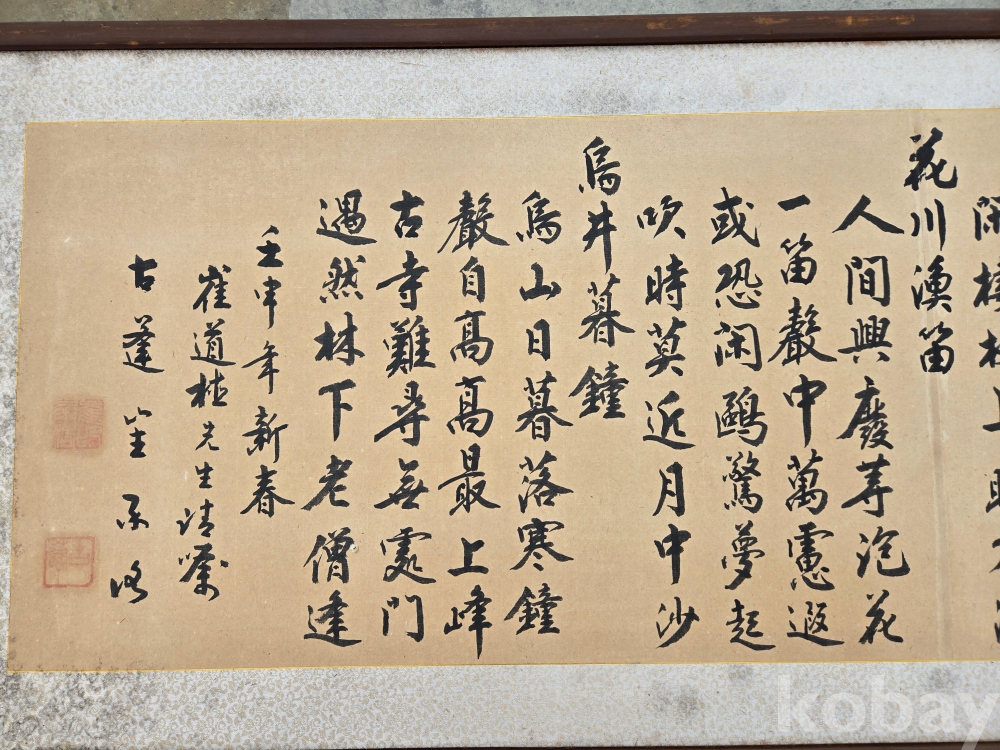 花川漁笛
人間興廢等泡花
一笛聲中萬慮遐
或恐閑鷗驚夢起
吹時莫近月中沙
烏井暮鐘
烏山日暮落寒鐘
聲自高高最上峰
古寺難尋無處門
遇然林下老僧逢
壬申年新春
崔道植先生請囑
古蓬 崔
kobay